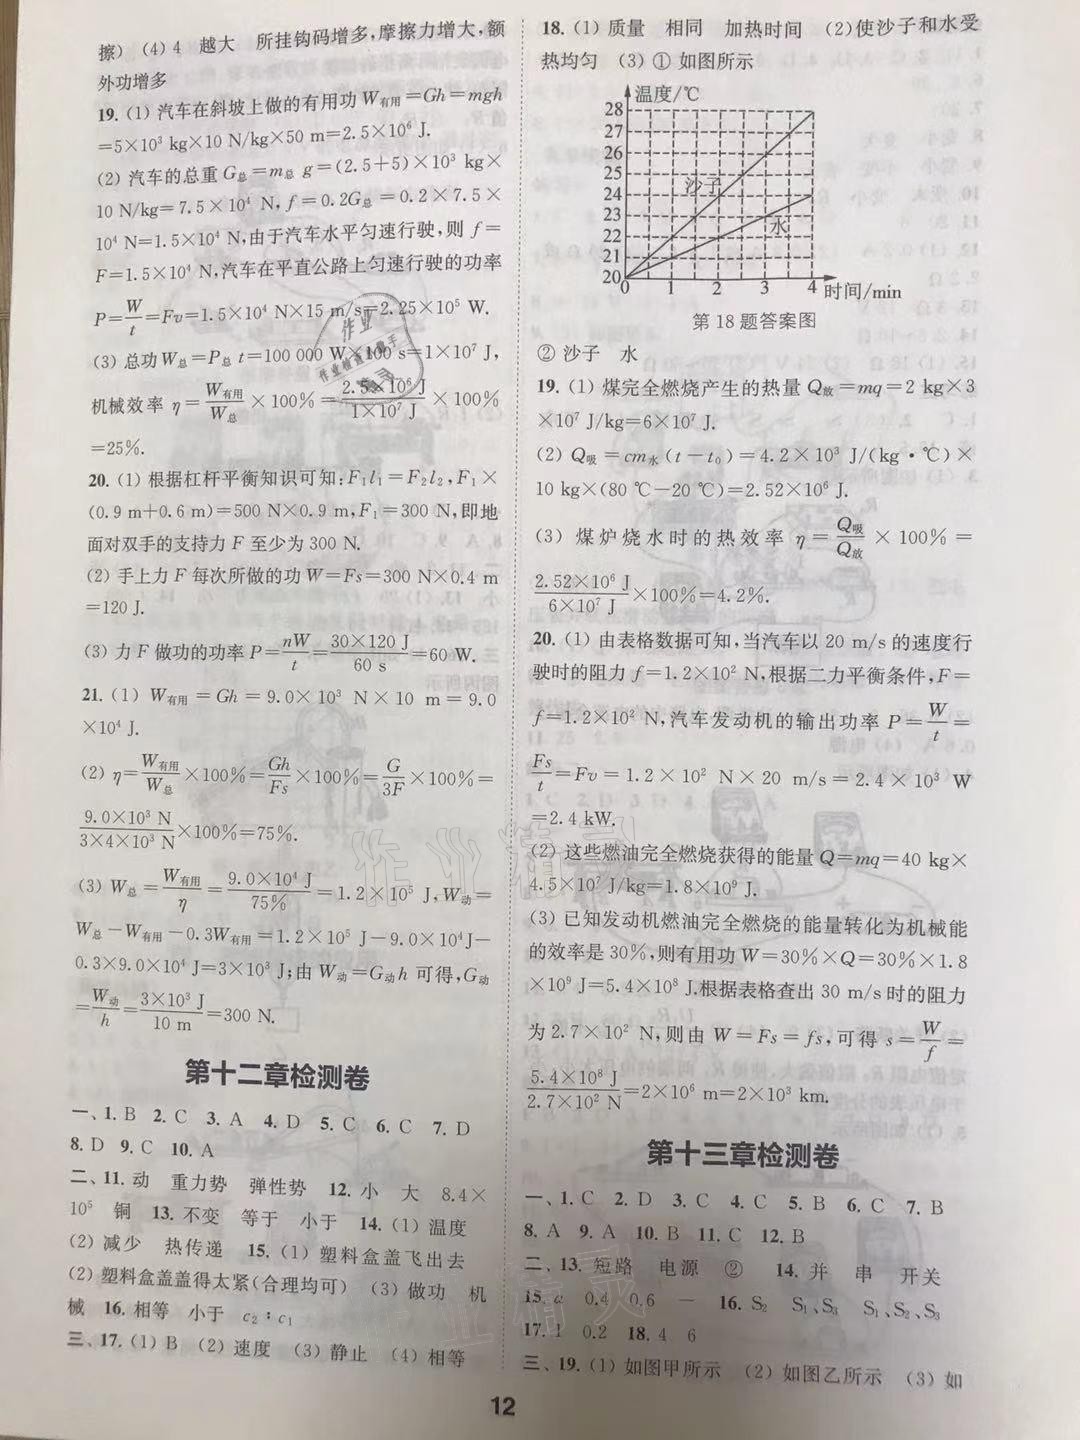 擦） (4) 4　越大　所挂钩码增多,摩擦力增大,额
外功增多
19. (1) 汽车在斜坡上做的有用功 W有用＝Gh＝mgh
＝5×10³ kg×10 N/kg×50 m＝2.5×10⁶ J.
(2) 汽车的总重 G总＝m总 g＝(2.5＋5)×10³ kg×
10 N/kg＝7.5×10⁴ N, f＝0.2G总＝0.2×7.5×
10⁴ N＝1.5×10⁴ N,由于汽车水平匀速行驶,则 f＝
F＝1.5×10⁴ N,汽车在平直公路上匀速行驶的功率
P＝W/t＝Fv＝1.5×10⁴ N×15 m/s＝2.25×10⁵ W.
(3) 总功 W总＝P总 t＝100 000 W×100 s＝1×10⁷ J,
机械效率 η＝W有用/W总×100%＝2.5×10⁶ J/1×10⁷ J×100%
＝25%.
20. (1) 根据杠杆平衡知识可知:F₁l₁＝F₂l₂,F₁×
(0.9 m＋0.6 m)＝500 N×0.9 m,F₁＝300 N,即地
面对双手的支持力 F 至少为 300 N.
(2) 手上力 F 每次所做的功 W＝Fs＝300 N×0.4 m
＝120 J.
(3) 力 F 做功的功率 P＝nW/t＝30×120 J/60 s＝60 W.
21. (1) W有用＝Gh＝9.0×10³ N×10 m＝9.0
×10⁴ J.
(2) η＝W有用/W总×100%＝Gh/Fs×100%＝G/3F×100%＝
9.0×10³ N/3×4×10³ N×100%＝75%.
(3) W总＝W有用/η＝9.0×10⁴ J/75%＝1.2×10⁵ J,W动＝
W总－W有用－0.3W有用＝1.2×10⁵ J－9.0×10⁴J－
0.3×9.0×10⁴ J＝3×10³ J;由 W动＝G动h 可得,G动
＝W动/h＝3×10³ J/10 m＝300 N.
第十二章检测卷
一、1. B 2. C 3. A 4. D 5. C 6. C 7. D
8. D 9. C 10. A
二、11. 动　重力势　弹性势　12. 小　大　8.4×
10⁵　铜　13. 不变　等于　小于　14. (1) 温度
(2) 减少　热传递　15. (1) 塑料盒盖飞出去
(2) 塑料盒盖盖得太紧(合理均可)　(3) 做功　机
械　16. 相等　小于　c₂∶c₁
三、17. (1) B　(2) 速度　(3) 静止　(4) 相等
18. (1) 质量　相同　加热时间　(2)使沙子和水受
热均匀　(3) ① 如图所示
温度/℃
28
27
26
25
24
23
22
21
20
沙子
水
0 1 2 3 4 时间/min
第 18 题答案图
② 沙子　水
19. (1) 煤完全燃烧产生的热量 Q放＝mq＝2 kg×3
×10⁷ J/kg＝6×10⁷ J.
(2) Q吸＝cm水(t－t₀)＝4.2×10³ J/(kg·℃)×
10 kg×(80 ℃－20 ℃)＝2.52×10⁶ J.
(3) 煤炉烧水时的热效率 η＝Q吸/Q放×100%＝
2.52×10⁶ J/6×10⁷ J×100%＝4.2%.
20. (1) 由表格数据可知,当汽车以 20 m/s 的速度行
驶时的阻力 f＝1.2×10² N,根据二力平衡条件,F＝
f＝1.2×10² N,汽车发动机的输出功率 P＝W/t＝
Fs/t＝Fv＝1.2×10² N×20 m/s＝2.4×10³ W
＝2.4 kW.
(2) 这些燃油完全燃烧获得的能量 Q＝mq＝40 kg×
4.5×10⁷ J/kg＝1.8×10⁹ J.
(3) 已知发动机燃油完全燃烧的能量转化为机械能
的效率是 30%,则有用功 W＝30%×Q＝30%×1.8
×10⁹ J＝5.4×10⁸ J.根据表格查出 30 m/s 时的阻力
为 2.7×10² N,则由 W＝Fs＝fs,可得 s＝W/f＝
5.4×10⁸ J/2.7×10² N＝2×10⁶ m＝2×10³ km.
第十三章检测卷
一、1. C 2. D 3. C 4. C 5. B 6. C 7. B
8. A 9. A 10. B 11. C 12. B
二、13. 短路　电源　②　14. 并　串　开关
15. a　0.4　0.6　－　16. S₂　S₁、S₃　S₁、S₂、S₃
17. 1　0.2　18. 4　6
三、19. (1) 如图甲所示　(2) 如图乙所示　(3) 如
12
作业精灵